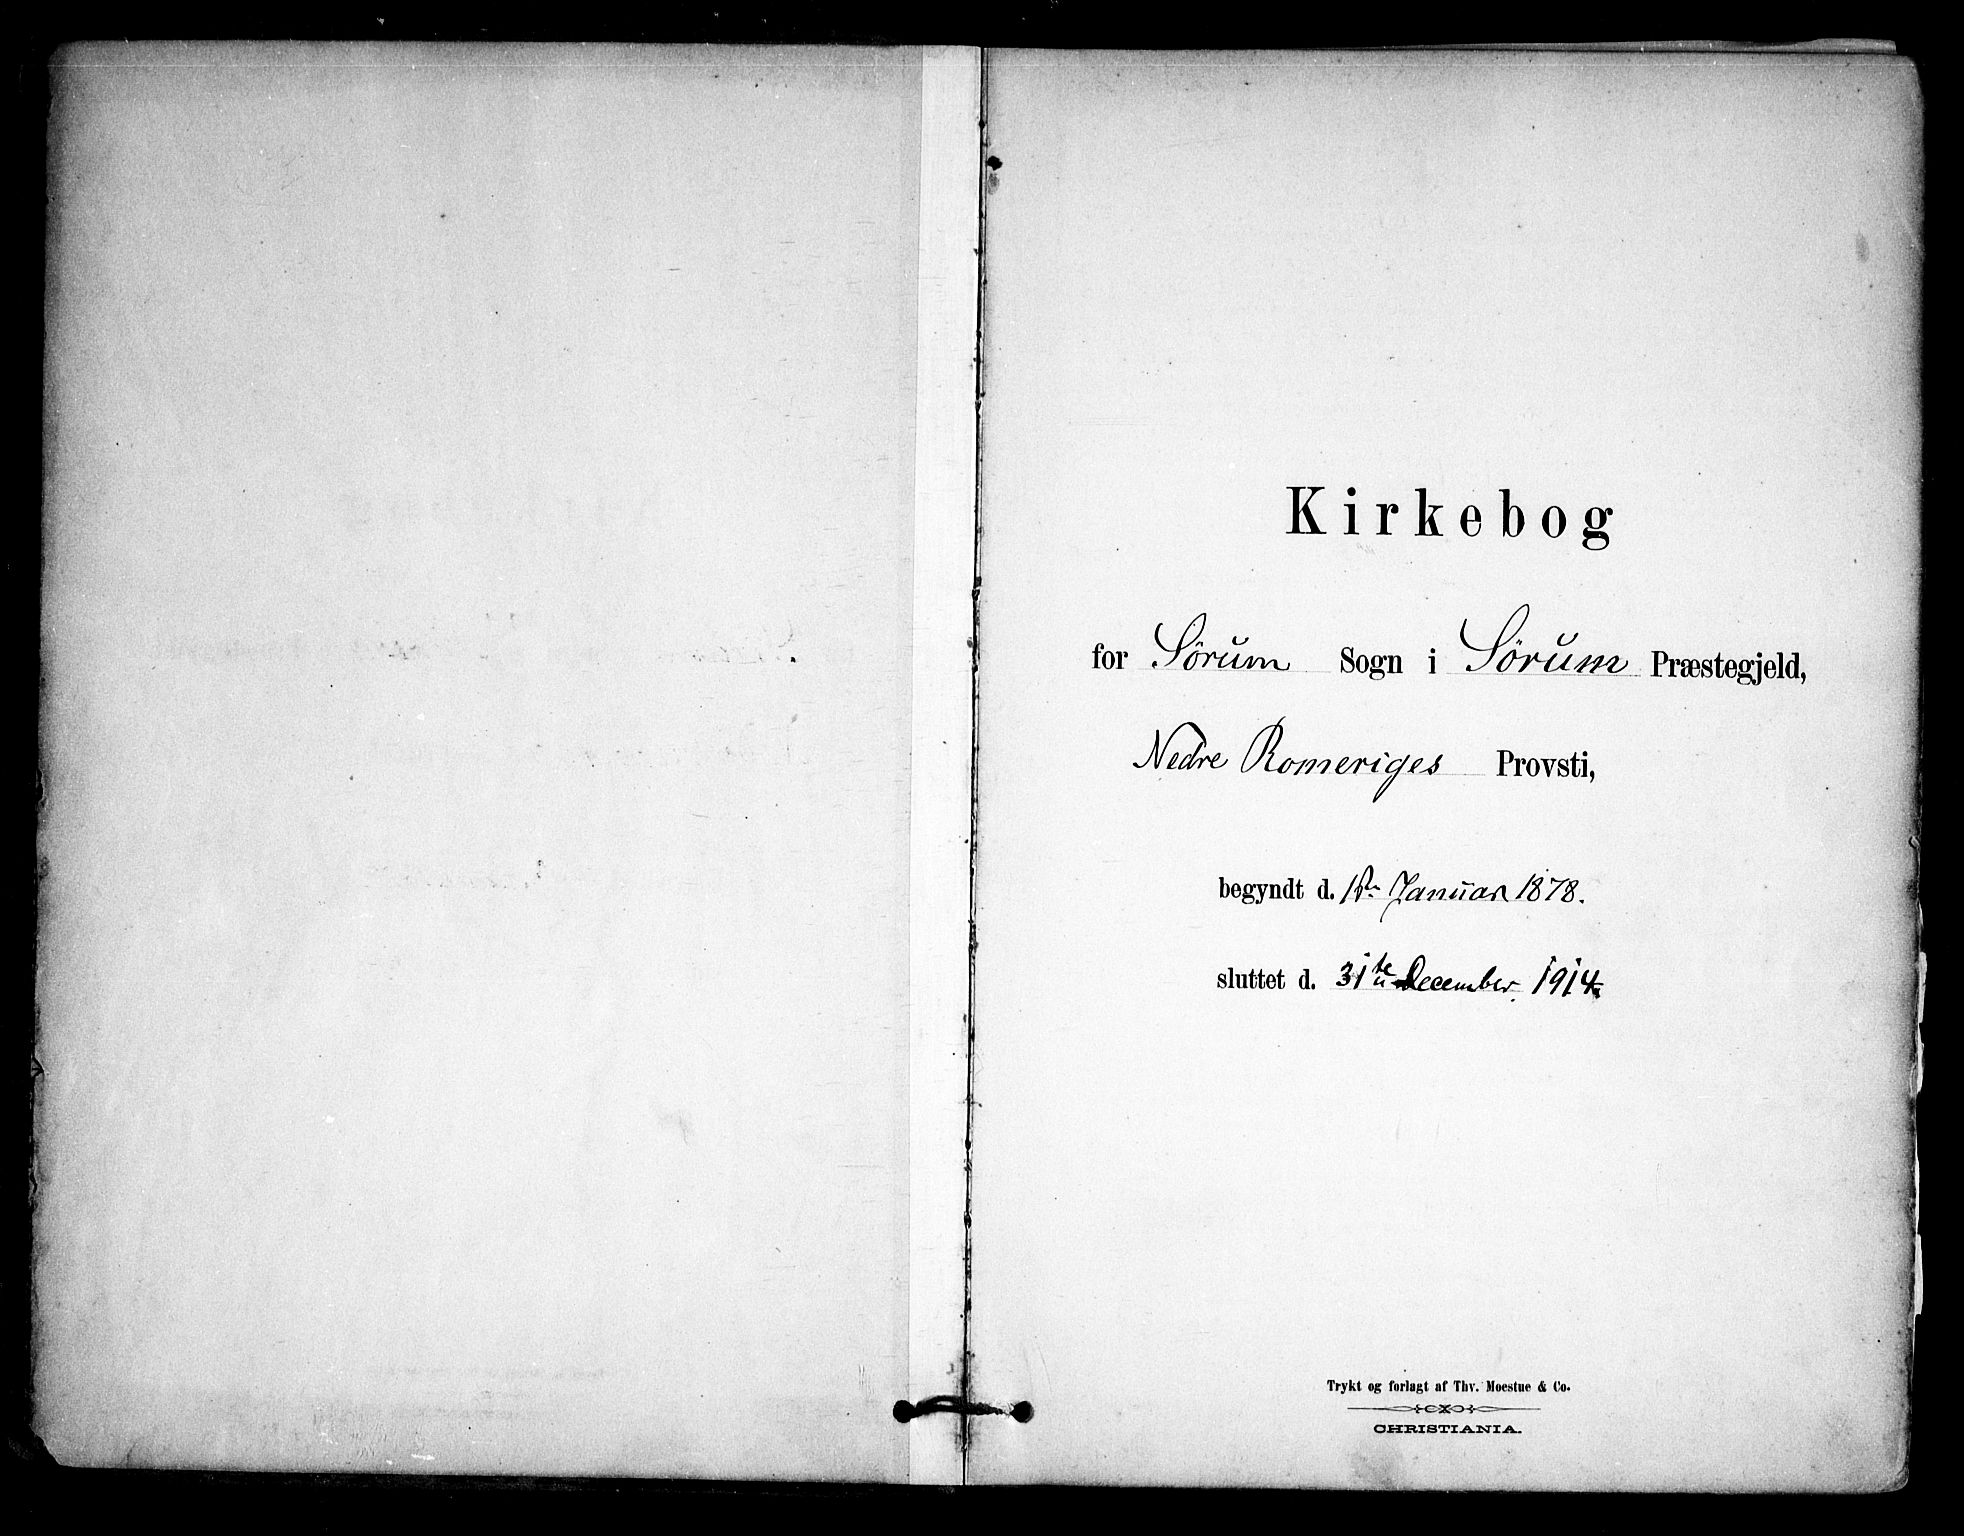 Kirkebog
for Sørum Sogn i Sørum Præstegjeld,
Nedre Romeriges Provsti,
begyndt d. 1ste Januar 1878.
sluttet d. 31te December. 1914.
Trykt og forlagt af Thv. Moestue & Co.
CHRISTIANIA.